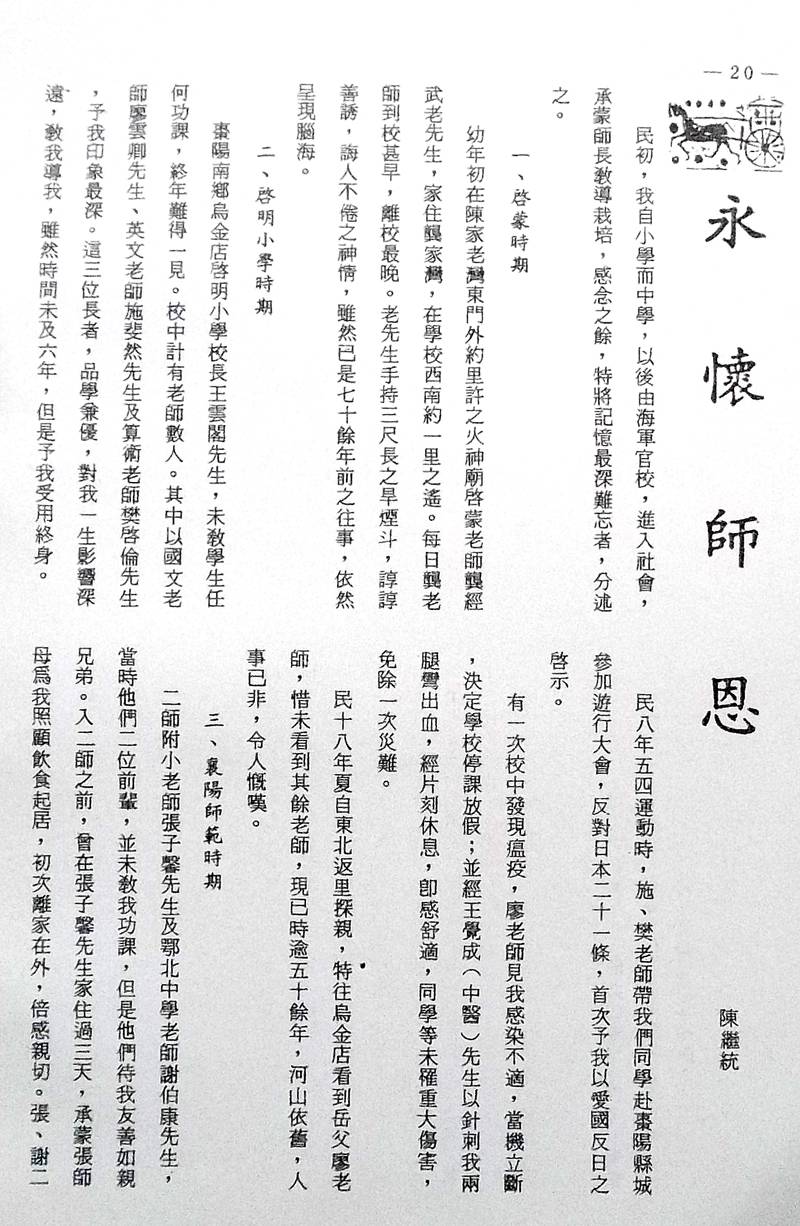 —20—
永懷師恩
陳繼統
民初，我自小學而中學，以後由海軍官校，進入社會，
承蒙師長教導栽培，感念之餘，特將記憶最深難忘者，分述
之。
一、啓蒙時期
幼年初在陳家老灣東門外約里許之火神廟啓蒙老師龔經
武老先生，家住龔家灣，在學校西南約一里之遙。每日龔老
師到校甚早，離校最晚。老先生手持三尺長之旱煙斗，諄諄
善誘，誨人不倦之神情，雖然已是七十餘年前之往事，依然
呈現腦海。
二、啓明小學時期
棗陽南鄉烏金店啓明小學校長王雲閣先生，未教學生任
何功課，終年難得一見。校中計有老師數人。其中以國文老
師廖雲卿先生、英文老師施斐然先生及算術老師樊啓倫先生
，予我印象最深。這三位長者，品學兼優，對我一生影響深
遠，教我導我，雖然時間未及六年，但是予我受用終身。
民八年五四運動時，施、樊老師帶我們同學赴棗陽縣城
參加遊行大會，反對日本二十一條，首次予我以愛國反日之
啓示。
有一次校中發現瘟疫，廖老師見我感染不適，當機立斷
，決定學校停課放假；並經王覺成（中醫）先生以針刺我兩
腿彎出血，經片刻休息，即感舒適，同學等未罹重大傷害，
免除一次災難。
民十八年夏自東北返里探親，特往烏金店看到岳父廖老
師，惜未看到其餘老師，現已時逾五十餘年，河山依舊，人
事已非，令人慨嘆。
三、襄陽師範時期
二師附小老師張子馨先生及鄂北中學老師謝伯康先生，
當時他們二位前輩，並未教我功課，但是他們待我友善如親
兄弟。入二師之前，曾在張子馨先生家住過三天，承蒙張師
母爲我照顧飲食起居，初次離家在外，倍感親切。張、謝二